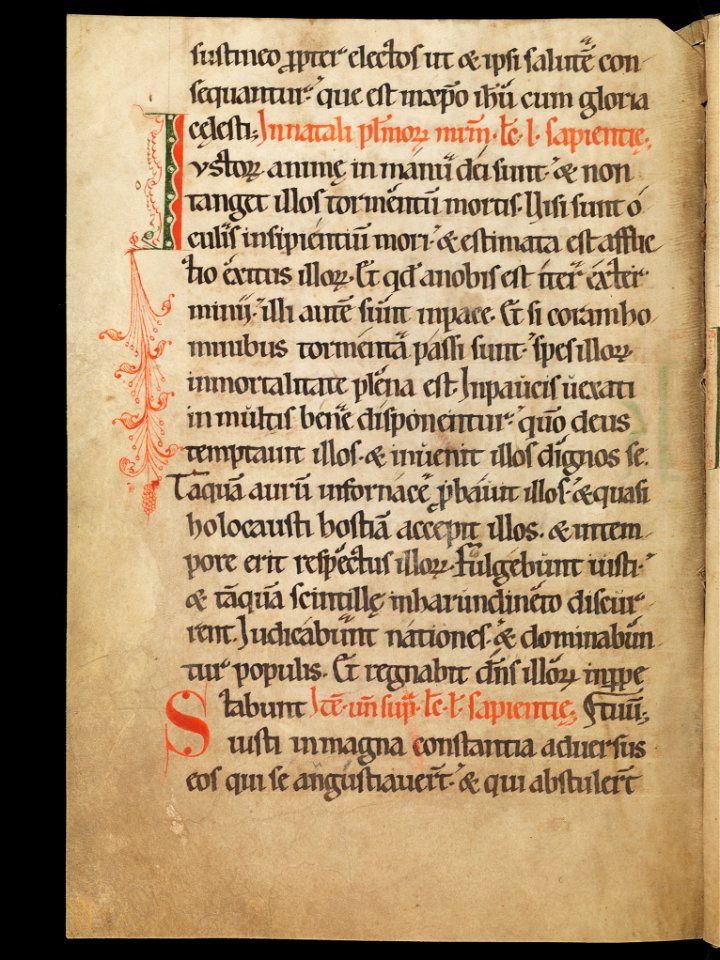 sustineo ꝓpter electos ut & ipsi salutē con
sequantur. que est in xpo ihū cum gloria
cęlesti; In natali plʼimoꝝ mrm̄. lēc. l. sapientię.
Iustoꝝ animę in manu dei sunt. & non
tanget illos tormentū mortis. Uisi sunt o
culis insipientiū mori. & estimata est afflic
tio exitus illoꝝ. Et qd a nobis est iter exter
minii. illi autē sunt in pace. Et si coram ho
minibus tormenta passi sunt. spes illoꝝ
inmortalitate plena est. In paucis uexati
in multis bene disponentur. quō deus
temptauit illos. & inuenit illos dignos se.
Taquā aurū in fornace ꝓbauit illos. & quasi
holocausti hostiā accepit illos. & in tem
pore erit respectus illoꝝ. Fulgebunt iusti.
& tāquā scintillę in harundineto discur
rent. Iudicabunt nationes. & dominabun
tur populis. Et regnabit dn̄s illoꝝ in ꝑpe
Stabunt Itē. un̄ supͣ. lēc. l. sapientię; tuū;
iusti in magna constantia aduersus
eos qui se angustiauer̄t. & qui abstuler̄t